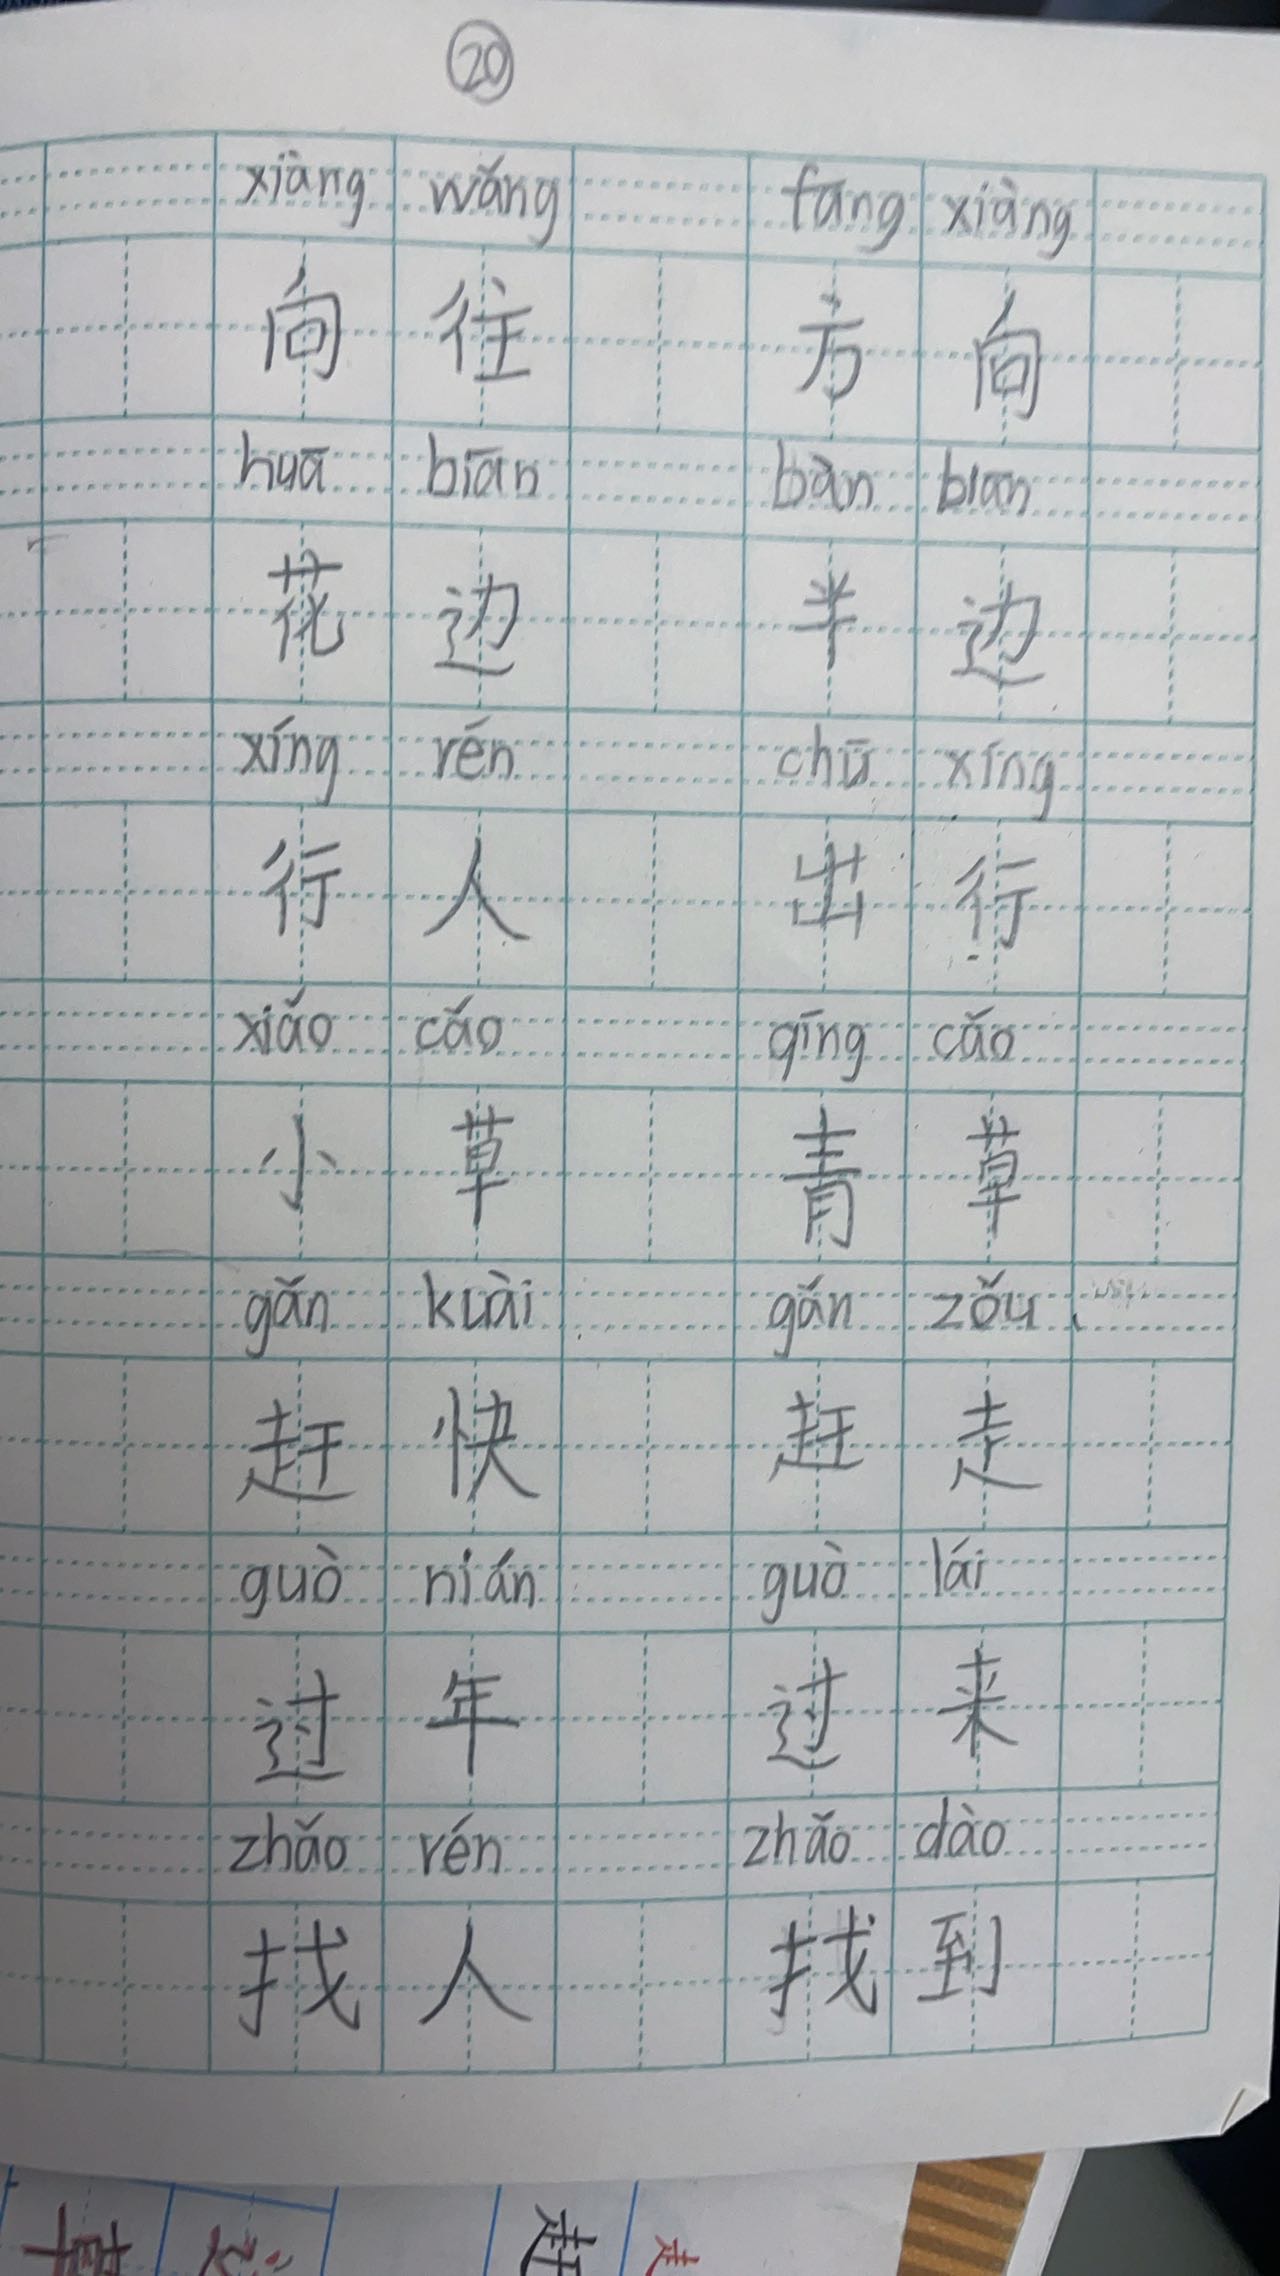 20
xiàng wǎng fāng xiàng
向往 方向
huā biān bàn biān
花边 半边
xíng rén chū xíng
行人 出行
xiǎo cǎo qīng cǎo
小草 青草
gǎn kuài gǎn zǒu
赶快 赶走
guò nián guò lái
过年 过来
zhǎo rén zhǎo dào
找人 找到
赶 走